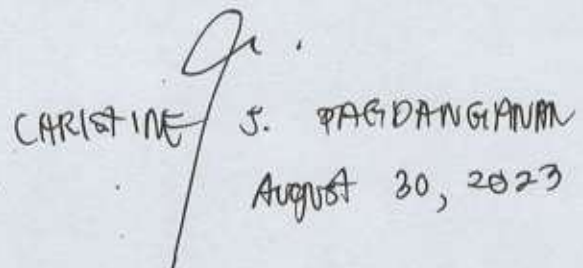 CHRISTINE S. PAGDANGANAN
August 30, 2023